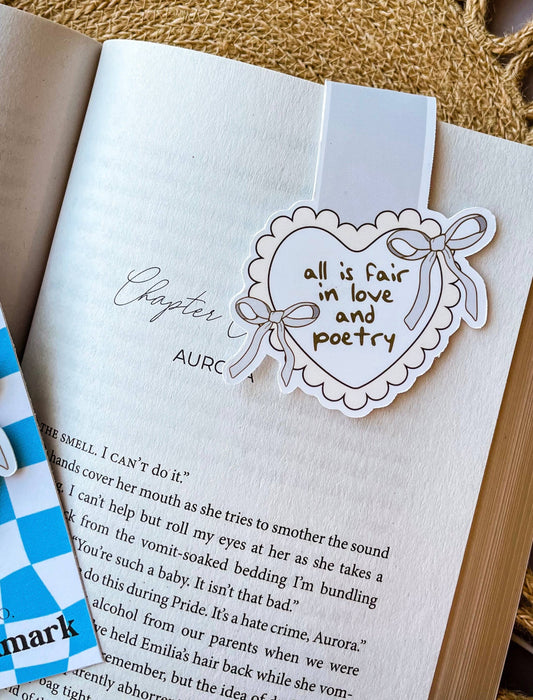 all is fair
in love
and
poetry
Chapter
AURORA
THE SMELL. I CAN'T do it."
hands cover her mouth as she tries to smother the sound
I can't help but roll my eyes at her as she takes a
from the vomit-soaked bedding I'm bundling
"You're such a baby. It isn't that bad."
do this during Pride. It's a hate crime, Aurora."
alcohol from our parents when we were
've held Emilia's hair back while she vom-
remember, but the idea of
abhorren
bag tight
mark